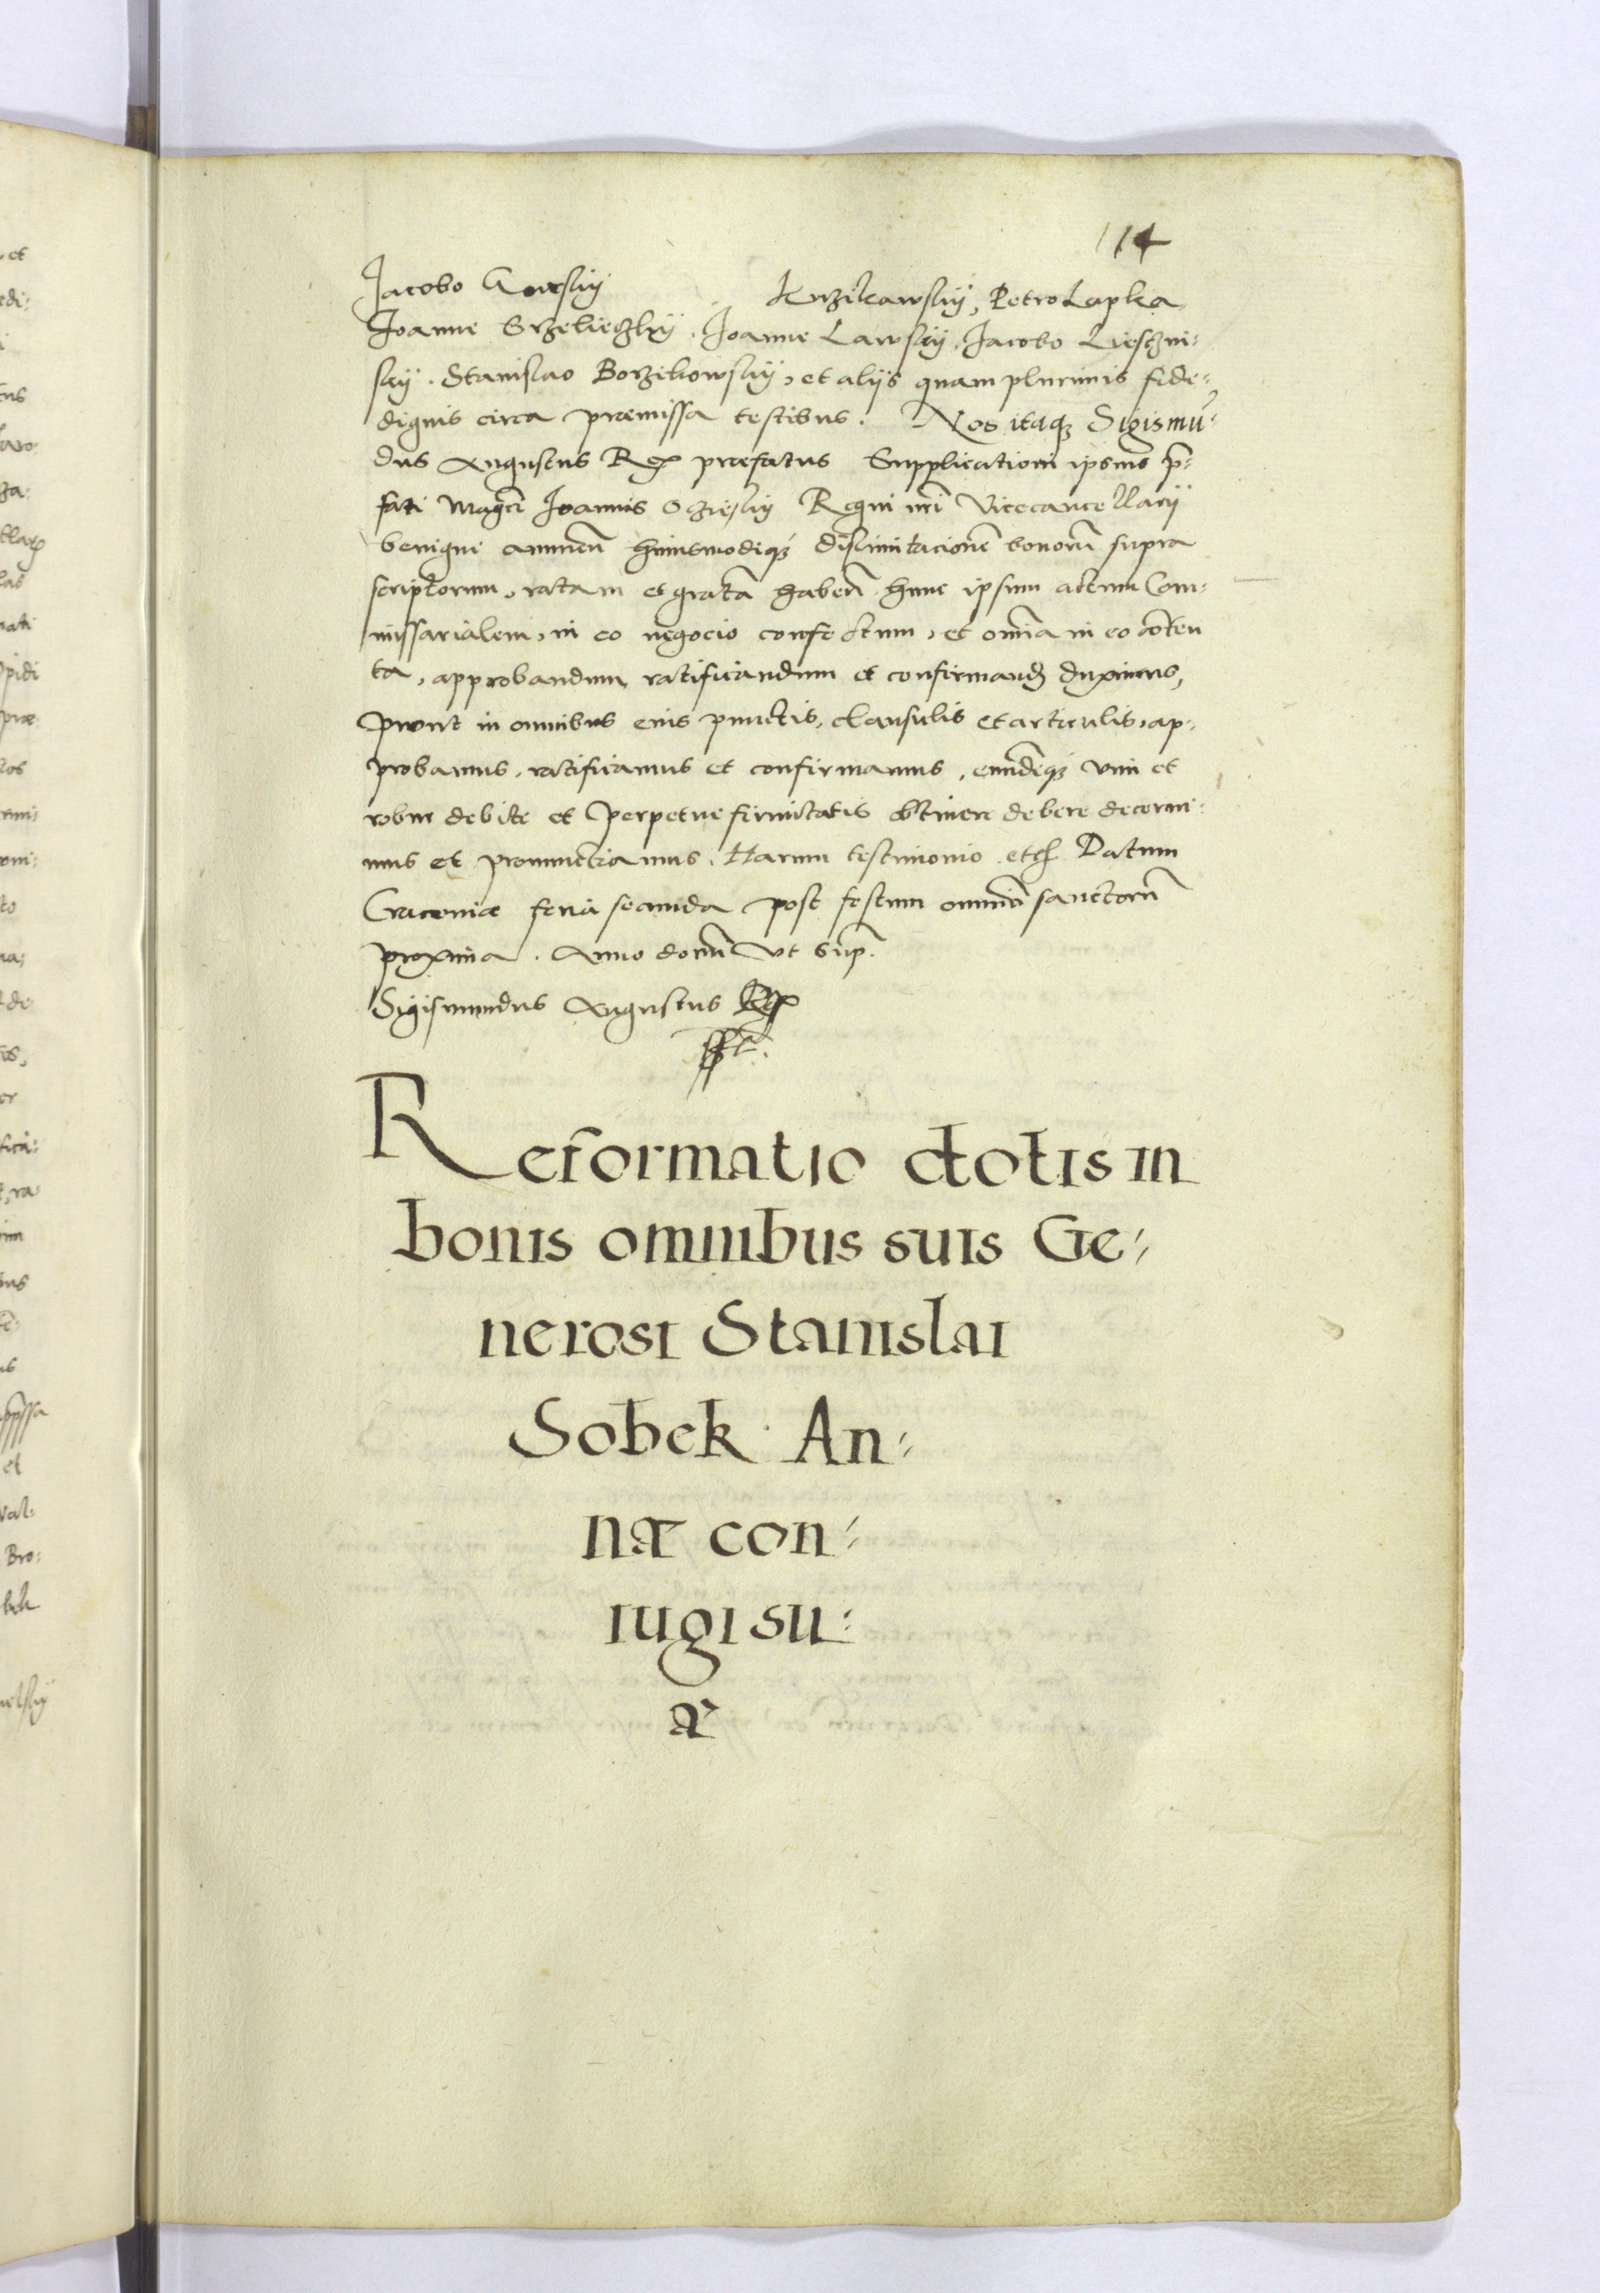 114
Jacobo Gorskÿ Krzikawskÿ, Petro Lapka
Joanne Srzeliechkÿ, Joanne Lawskÿ, Jacobo Lieschni:
skÿ. Stanislao Borzikowskÿ, et alÿs quam plurimis fide:
dignis circa præmissa testibus. Nos itaqȝ Sigismū:
dus Augustus Rex præfatus Supplicationi ipsius p̄:
fati Magci Joannis Oczieskÿ Regni nrī Vicecancellarÿ
benigne annuen̄ huiusmodiqȝ dislimitacionē bonorū supra
scriptorum, ratam et gratā haben̄ hunc ipsum actum Com:
missarialem, in eo negocio confectum, et omīa in eo cōten
ta, approbandum ratificandum et confirmand duximus,
prout in omnibus eius punctis, clausulis et articulis, ap:
probamus, ratificamus et confirmamus, eundēqȝ vim et
robur debite et perpetue firmitatis obtinere debere decerni:
mus et pronunctiamus. Harum testimonio etc Datum
Cracouiæ feria secunda post festum omniū sanctorū
proxima. Anno domī vt sup.
Sigismundus Augustus Rex
sst.
Reformatio dotis in
bonis omnibus suis Ge:
nerosi Stanislai
Sobek An:
næ con:
iugi su:
æ